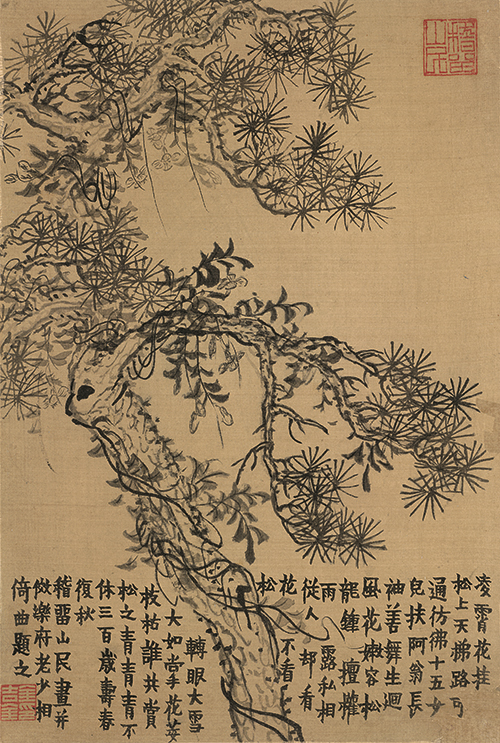 凌霄花挂
松上天梯路可
通彷彿十五女
兒扶阿翁長
袖善舞生迴
風花嫩容松
龍鍾擅權
雨露私相
從人却看
花不看
松
轉眼大雪
大如掌花萎
枝枯誰共賞
松之青青青不
休三百歲壽春
復秋
稽留山民畫并
倣樂府老少相
倚曲題之
稽留山民
金吉金